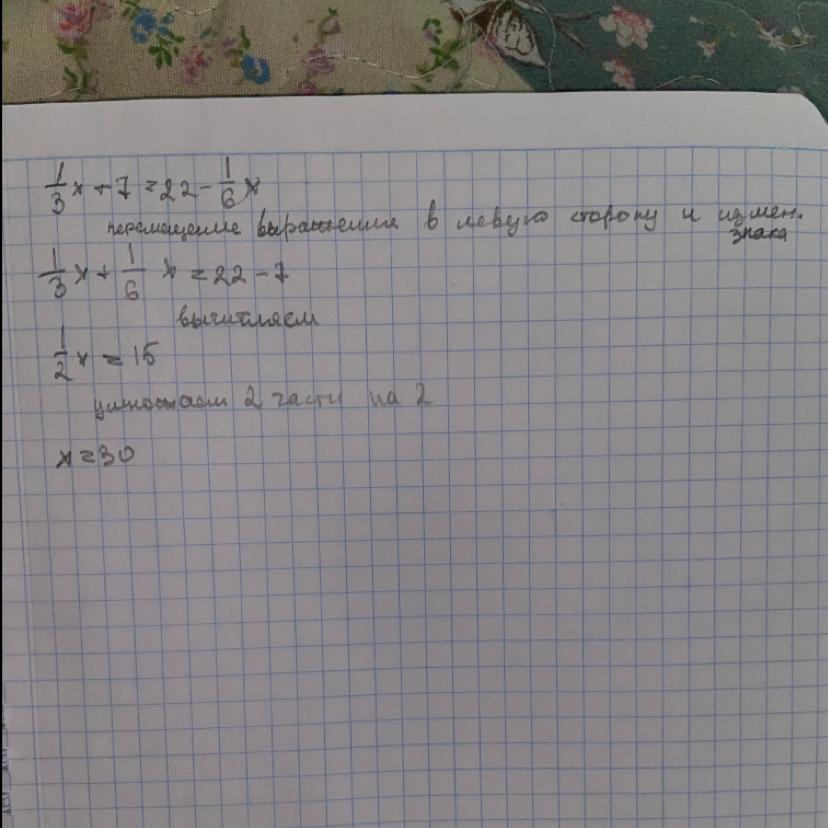 1/3 x + 7 = 22 - 1/6 x
перемещение выражения в левую сторону и измен.
знака
1/3 x + 1/6 x = 22 - 7
вычитляем
1/2 x = 15
умножаем 2 части на 2
x = 30